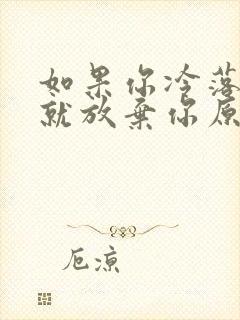 如果你冷落
就放弃你原
厄凉